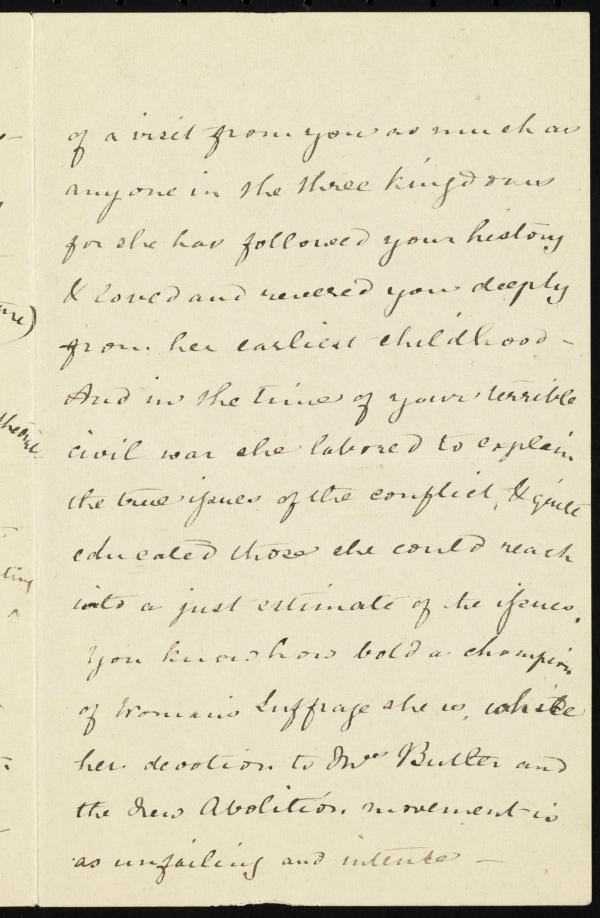 of a visit from you as much as
anyone in the three kingdoms
for she has followed your history
& loved and revered you deeply
from her earliest childhood –
And in the time of your terrible
civil war she labored to explain
the true issues of the conflict, & quite
educated those she could reach
into a just estimate of the issues.
You know how bold a champion
of Woman's Suffrage she is, while
her devotion to Mrs Butler and
the New Abolition movement is
as unfailing and intense –